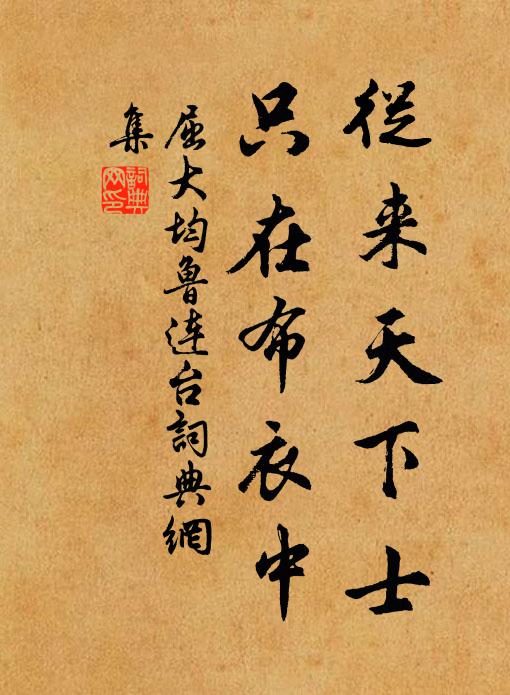 從来天下士
只在布衣中
屈大均魯连台詞典網
集
詞典网印